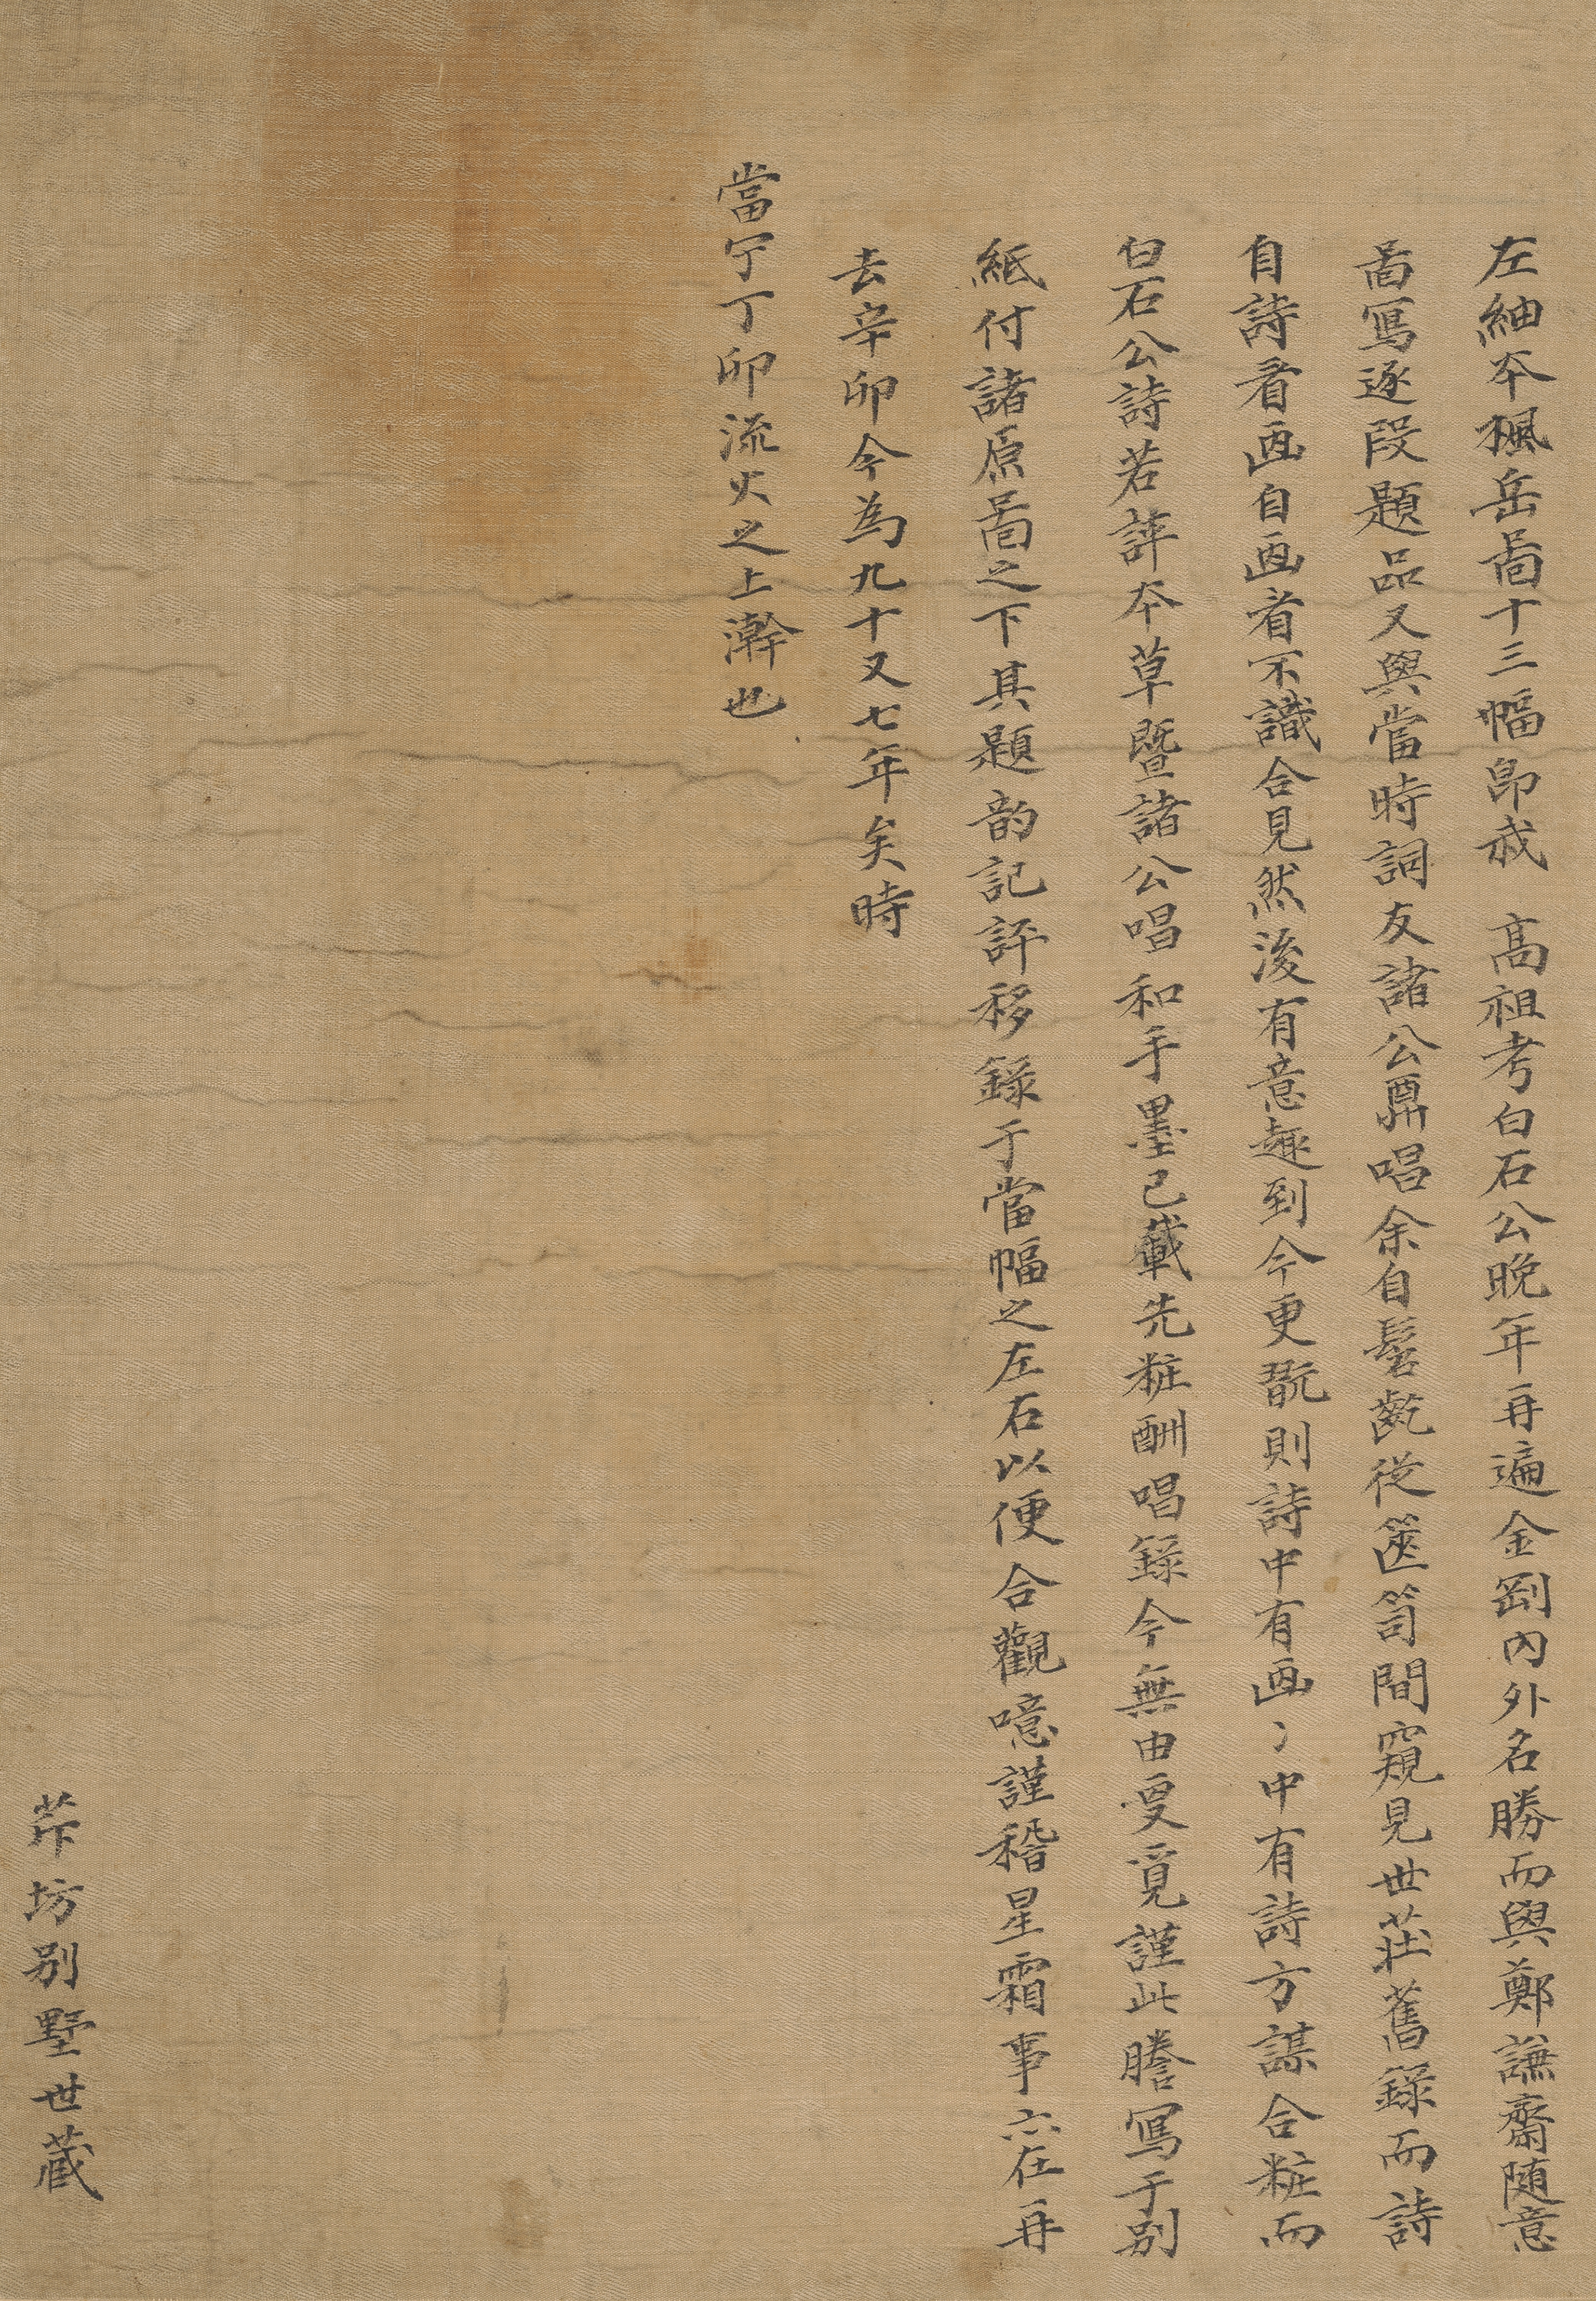 左紬本楓岳啚十三幅卽我 高祖考白石公晩年再遍金剛內外名勝而與鄭謙齋随意
啚寫逐段題品又與當時詞友諸公賡唱余自髫齔從篋笥間窺見世莊舊錄而詩
自詩看画自画看不識合見然後有意趣到今更翫則詩中有画〻中有詩方謀合粧而
白石公詩若評本草曁諸公唱和手墨已載先粧酬唱錄今無由更覓謹此謄寫于别
紙付諸原啚之下其題韵記評移錄于當幅之左右以便合觀噫謹稽星霜事六在再
去辛卯今為九十又七年矣時
當宁丁卯流火之上澣也
芹坊别墅世藏